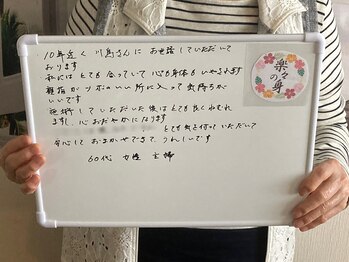 10年近く川島さんにお世話していただいて
おります
私にはとても合っていて心も身体もいやされます
親指がツボのいい所に入って気持ちが
いいです
施術していただいた後はとても良くねむれ
ますし、心おだやかになります
とても気を付っていただいて
安心しておまかせできて、うれしいです
60代 女性 主婦
楽々の身